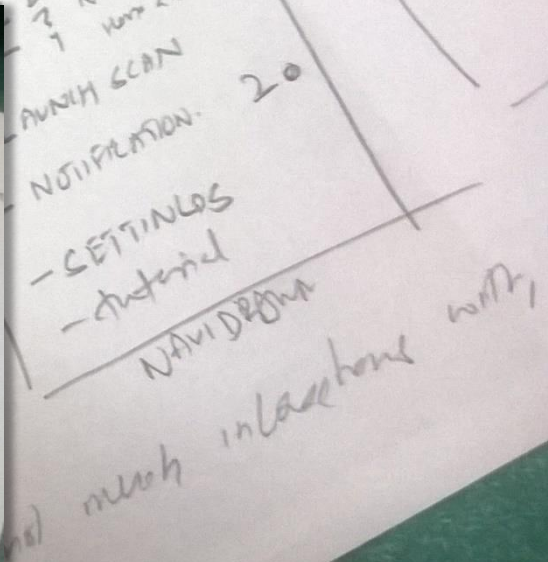 - ?
LAUNCH SCAN
- NOTIFICATION. 20
- SETTINGS
- tutorial
NAVI DRAWR
not much interactions with,